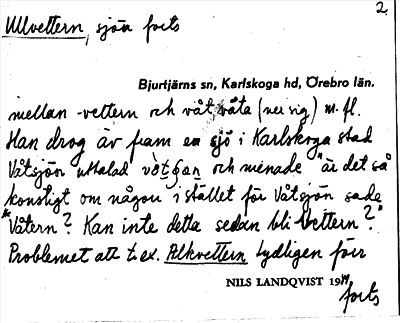 2.
Ullvettern, sjön forts
Bjurtjärns sn, Karlskoga hd, Örebro län.
mellan -vettern och våt, våta (ner sig) m.fl.
Han drog äv fram en sjö i Karlskoga stad
Våtsjön uttalad och menade "är det så
konstigt om någon i stället för Våtsjön sade
*Våtern? Kan inte detta sedan bli Vettern?"
Problemet att t.ex. Alkvettern tydligen förr
NILS LANDQVIST 19
forts